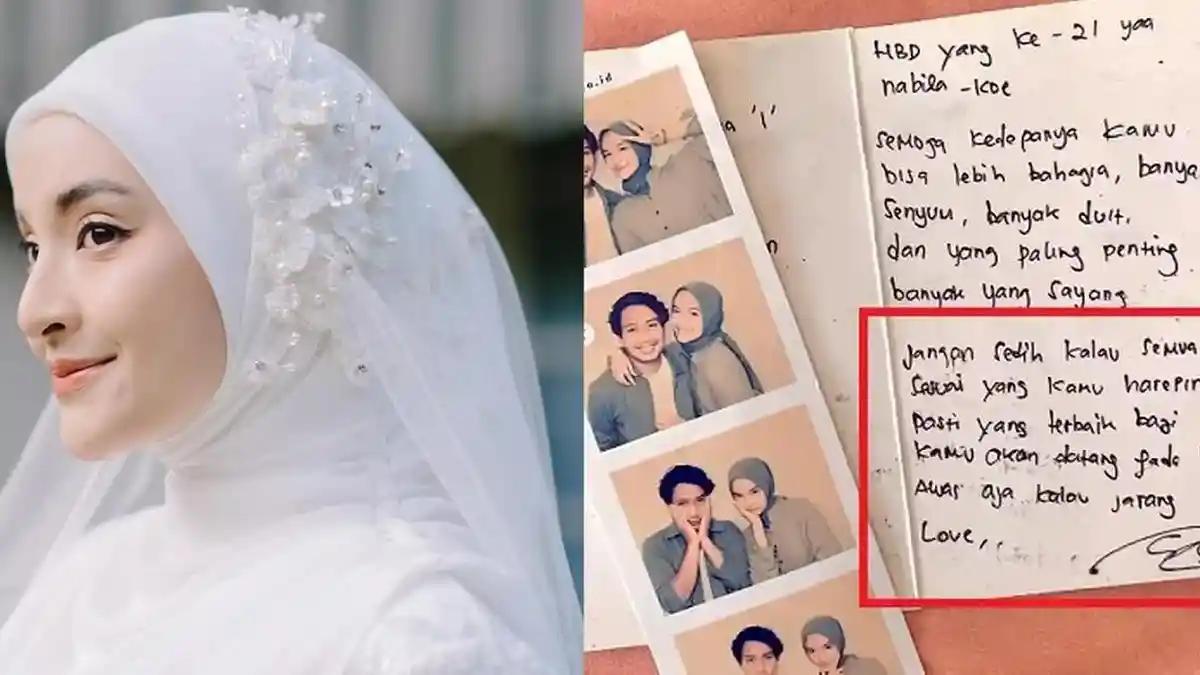 o.id
a '1'
n
HBD yang ke - 21 yaa
nabila - koe
semoga kedepanya kamu
bisa lebih bahagia, banya
senyuu, banyak duit.
dan yang paling penting
banyak yang sayang
Jangan sedih kalau semua
sesuai yang kamu harepin
pasti yang terbaik bagi
kamu akan datang pada
Awas aja kalau jarang
Love,